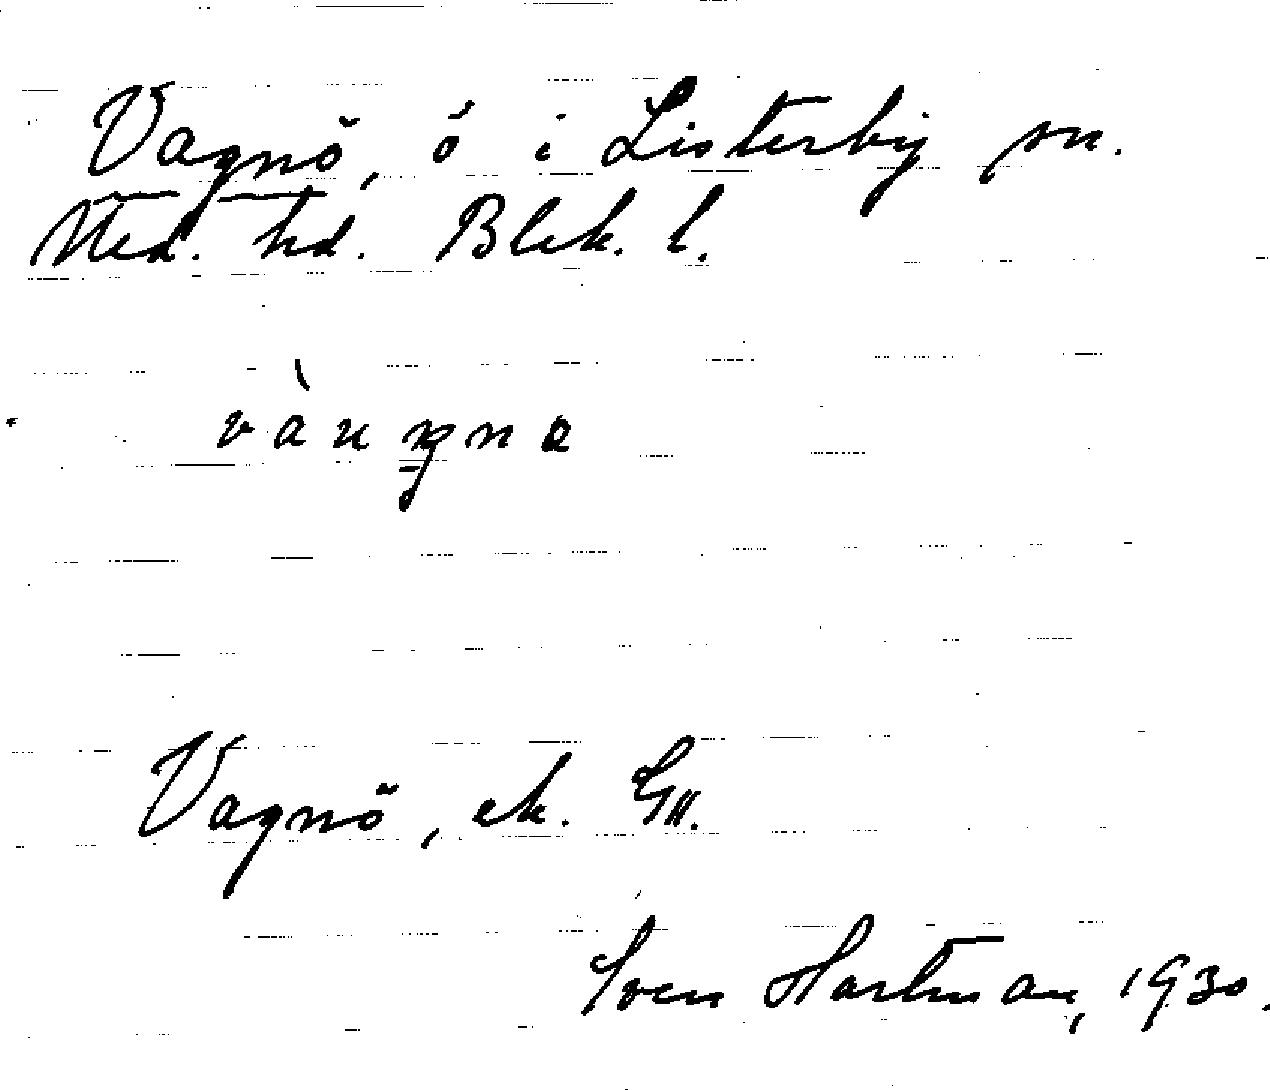 Vagnö, ö i Listerby sn.
Med. hd. Blek. l.
Vagnö, ek. GII.
Sven Hartman, 1930.